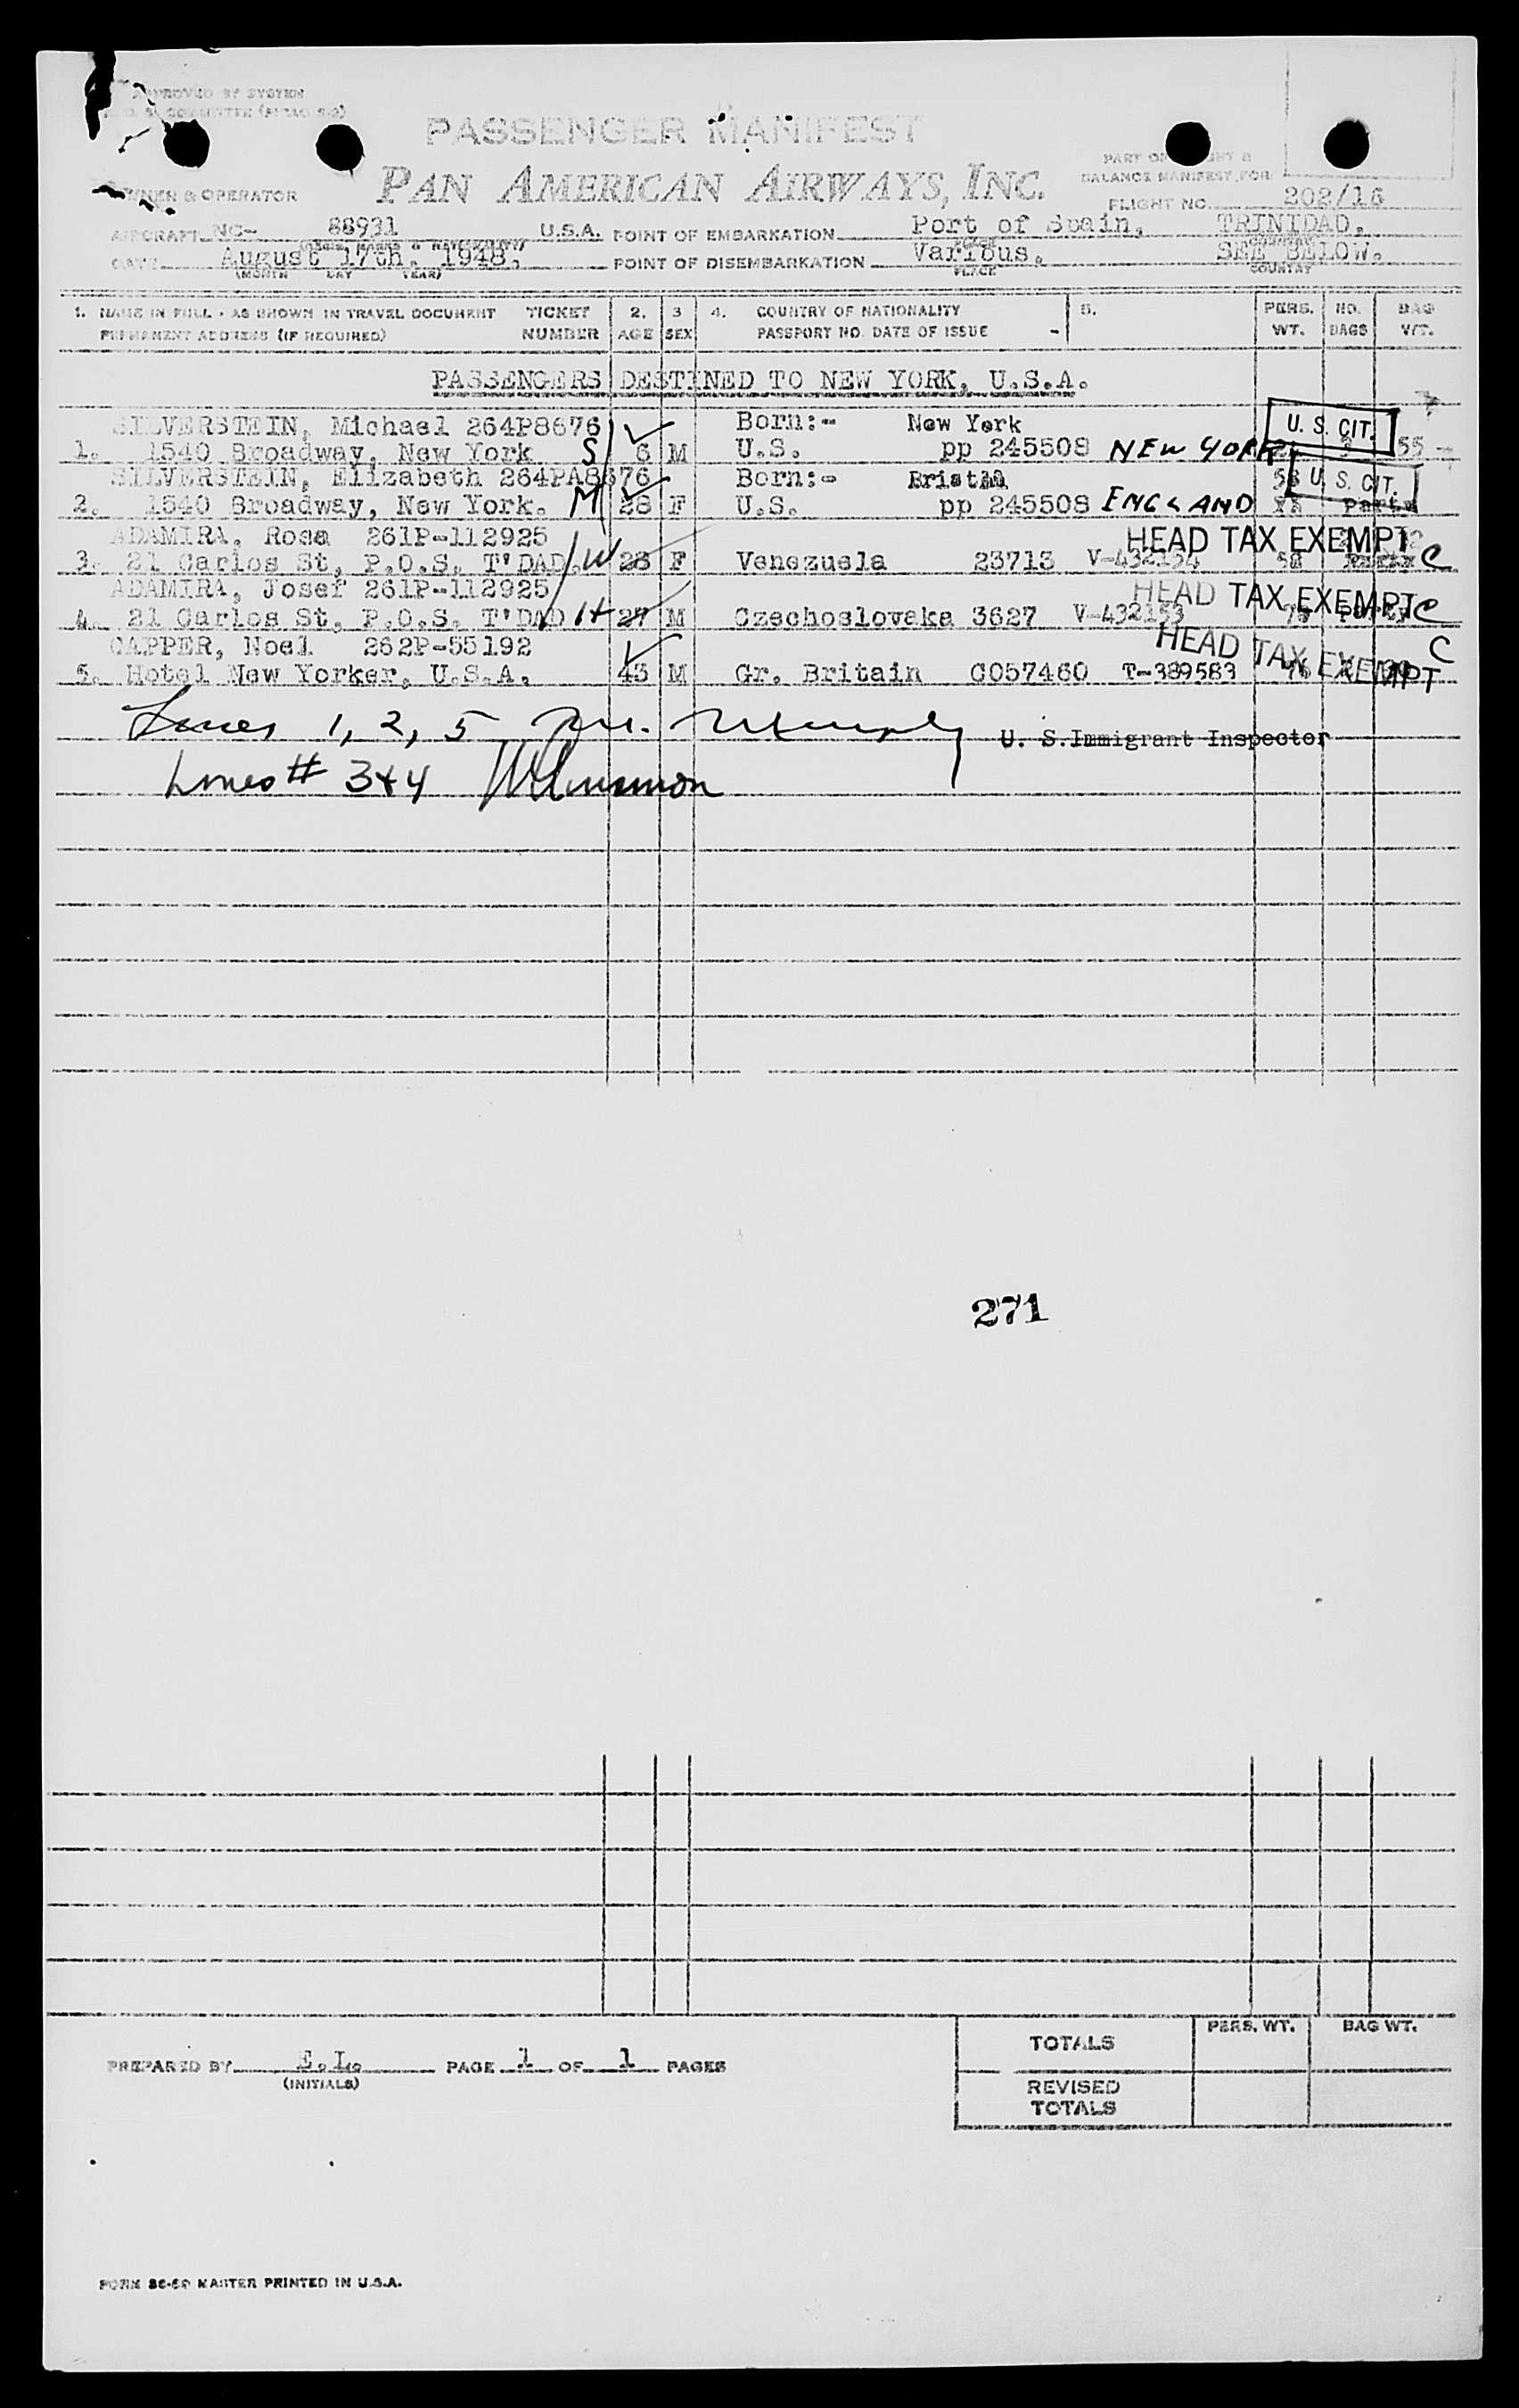 APPROVED BY SYSTEM
PASSENGER MANIFEST
PAN AMERICAN AIRWAYS, INC.
OWNER & OPERATOR
PART OF
BALANCE MANIFEST FOR
FLIGHT NO. 202/16
AIRCRAFT NC- 88931 U.S.A. POINT OF EMBARKATION Port of Spain, TRINIDAD.
DATE August 17th. 1948. POINT OF DISEMBARKATION Various. SEE BELOW.
(MONTH DAY YEAR) PLACE COUNTRY
1. NAME IN FULL - AS SHOWN IN TRAVEL DOCUMENT TICKET 2. 3 4. COUNTRY OF NATIONALITY 5. PERS. NO. BAG
PERMANENT ADDRESS (IF REQUIRED) NUMBER AGE SEX PASSPORT NO. DATE OF ISSUE WT. BAGS WT.
PASSENGERS DESTINED TO NEW YORK, U.S.A.
SILVERSTEIN, Michael 264P8676 Born:- New York U. S. CIT.
1. 1540 Broadway, New York S 6 M U.S. pp 245508 NEW YORK 55
SILVERSTEIN, Elizabeth 264PA8676 Born:- U. S. CIT.
2. 1540 Broadway, New York. M 28 F U.S. pp 245508 ENGLAND
ADAMIRA, Rosa 261P-112925 HEAD TAX EXEMPT
3. 21 Carlos St, P.O.S. T'DAD. W 28 F Venezuela 23713 V-432154 C
ADAMIRA, Josef 261P-112925 HEAD TAX EXEMPT
4. 21 Carlos St, P.O.S. T'DAD H 27 M Czechoslovaka 3627 V-432153 C
CAPPER, Noel 262P-55192 HEAD TAX EXEMPT C
5. Hotel New Yorker, U.S.A. 43 M Gr. Britain C057460 T-389583
Lines 1, 2, 5 U. S. Immigrant Inspector
Lines # 3+4
271
TOTALS PERS. WT. BAG WT.
PREPARED BY E.L. PAGE 1 OF 1 PAGES
(INITIALS)
REVISED
TOTALS
FORM MASTER PRINTED IN U.S.A.